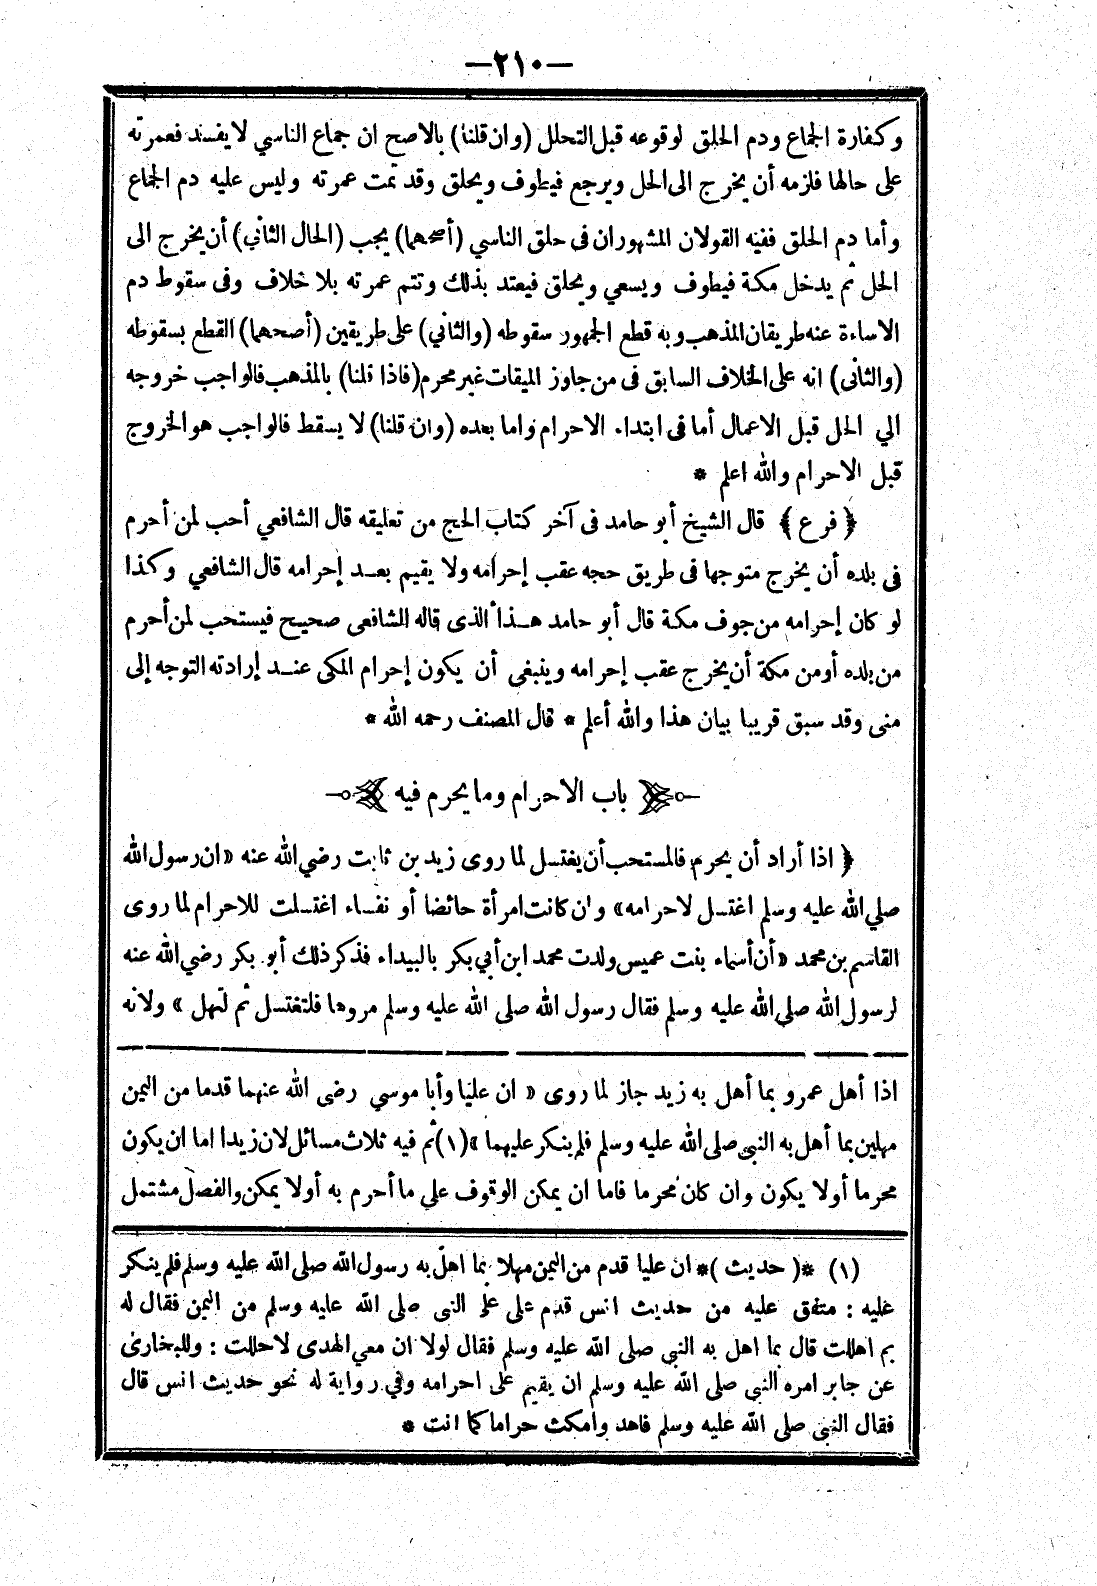 —٢١٠—
وكفارة الجماع ودم الحلق لوقوعه قبل التحلل (وان قلنا) بالاصح ان جماع الناسي لا يفسد فعمرته
على حالها فلزمه أن يخرج الى الحل ويرجع فيطوف ويحلق وقد تمت عمرته وليس عليه دم الجماع
وأما دم الحلق ففيه القولان المشهوران فى حلق الناسي (أصحهما) يجب (الحال الثاني) أن يخرج الى
الحل ثم يدخل مكة فيطوف ويسعي ويحلق فيعتد بذلك وتتم عمرته بلا خلاف وفى سقوط دم
الاساءة عنه طريقان المذهب وبه قطع الجمهور سقوطه (والثاني) على طريقين (أصحهما) القطع بسقوطه
(والثانى) انه على الخلاف السابق فى من جاوز الميقات غير محرم (فاذا قلنا) بالمذهب فالواجب خروجه
الي الحل قبل الاعمال أما فى ابتداء الاحرام واما بعده (وان قلنا) لا يسقط فالواجب هو الخروج
قبل الاحرام والله اعلم *
﴿ فرع ﴾ قال الشيخ أبو حامد فى آخر كتاب الحج من تعليقه قال الشافعي أحب لمن أحرم
فى بلده أن يخرج متوجها فى طريق حجه عقب إحرامه ولا يقيم بعـد إحرامه قال الشافعي وكذا
لو كان إحرامه من جوف مكة قال أبو حامد هـذا الذى قاله الشافعى صحيح فيستحب لمن أحرم
من بلده أو من مكة أن يخرج عقب إحرامه وينبغى أن يكون إحرام المكى عنـد إرادته التوجه إلى
منى وقد سبق قريبا بيان هذا والله أعلم * قال المصنف رحمه الله *
باب الاحرام وما يحرم فيه
﴿ اذا أراد أن يحرم فالمستحب أن يغتسل لما روى زيد بن ثابت رضي الله عنه «ان رسول الله
صلي الله عليه وسلم اغتـسل لاحرامه» وان كانت امرأة حائضا أو نفسـاء اغتـسلت للاحرام لما روى
القاسم بن محمد «أن أسماء بنت عميس ولدت محمد ابن أبي بكر بالبيداء فذكر ذلك أبو بكر رضي الله عنه
لرسول الله صلي الله عليه وسلم فقال رسول الله صلى الله عليه وسلم مروها فلتغتسل ثم لتهل » ولانه
اذا أهل عمرو بما أهل به زيد جاز لما روى « ان عليا وأبا موسي رضى الله عنهما قدما من اليمن
مهلين بما أهل به النبي صلى الله عليه وسلم فلم ينكر عليهما »(١) ثم فيه ثلاث مسائل لان زيدا اما ان يكون
محرما أولا يكون وان كان محرما فاما ان يمكن الوقوف علي ما أحرم به أولا يمكن والفصل مشتمل
(١) *( حديث )* ان عليا قدم من اليمن مهلا بما اهل به رسول الله صلى الله عليه وسلم فلم ينكر
عليه : متفق عليه من حديث انس قدم على على النبى صلى الله عليه وسلم من اليمن فقال له
بم اهللت قال بما اهل به النبي صلى الله عليه وسلم فقال لولا ان معي الهدى لاحللت : وللبخارى
عن جابر امره النبى صلى الله عليه وسلم ان يقيم على احرامه وفي رواية له نحو حديث انس قال
فقال النبى صلى الله عليه وسلم فاهد وامكث حراما كما انت *